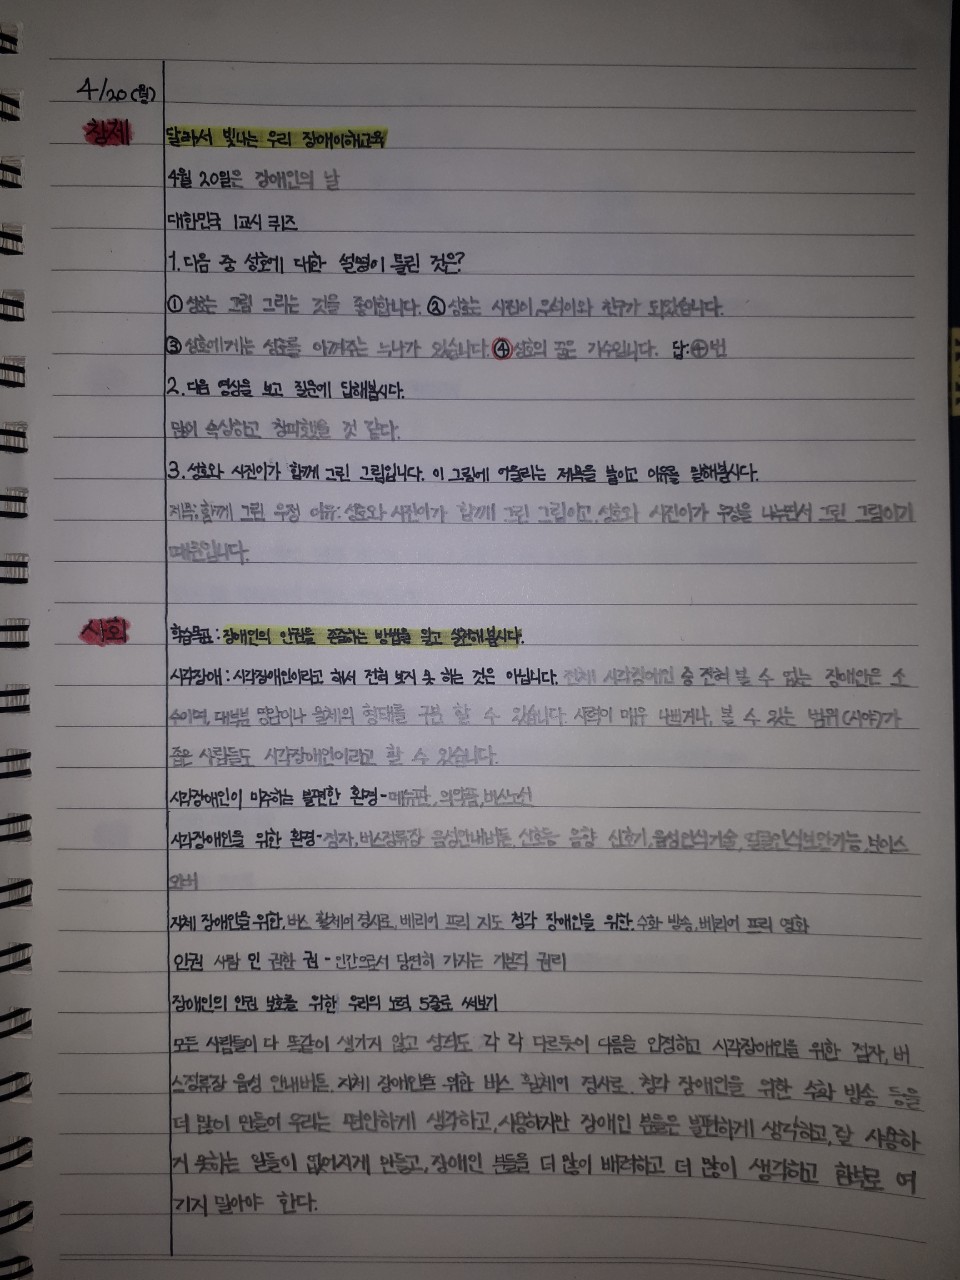 4/20(월)
창체
달라서 빛나는 우리 장애이해교육
4월 20일은 장애인의 날
대한민국 1교시 퀴즈
1. 다음 중 성호에 대한 설명이 틀린 것은?
① 성호는 그림 그리는 것을 좋아합니다. ② 성호는 시진이, 우식이와 친구가 되었습니다.
③ 성호에게는 성호를 아껴주는 누나가 있습니다. ④ 성호의 꿈은 가수입니다. 답:④번
2. 다음 영상을 보고 질문에 답해봅시다.
많이 속상하고 창피했을 것 같다.
3. 성호와 시진이가 함께 그린 그림입니다. 이 그림에 어울리는 제목을 붙이고 이유를 말해봅시다.
제목: 함께 그린 우정 이유: 성호와 시진이가 함께 그린 그림이고, 성호와 시진이가 우정을 나누면서 그린 그림이기
때문입니다.
사회
학습목표: 장애인의 인권을 존중하는 방법을 알고 실천해봅시다.
시각장애: 시각장애인이라고 해서 전혀 보지 못 하는 것은 아닙니다. 전체 시각장애인 중 전혀 볼 수 없는 장애인은 소
수이며, 대부분 명암이나 물체의 형태를 구분 할 수 있습니다. 시력이 매우 나쁘거나, 볼 수 있는 범위(시야)가
좁은 사람들도 시각장애인이라고 할 수 있습니다.
시각장애인이 마주하는 불편한 환경-메뉴판, 의약품, 버스노선
시각장애인을 위한 환경-점자, 버스정류장 음성안내버튼, 신호등 음향 신호기, 음성인식기술, 얼굴인식보안기능, 보이스
오버
지체 장애인을 위한, 버스 휠체어 경사로, 베리어 프리 지도 청각 장애인을 위한. 수화 방송, 베리어 프리 영화
인권 사람 인 권한 권 - 인간으로서 당연히 가지는 기본적 권리
장애인의 인권 보호를 위한 우리의 노력 5줄로 써보기
모든 사람들이 다 똑같이 생기지 않고 성격도 각 각 다르듯이 다름을 인정하고 시각장애인을 위한 점자, 버
스정류장 음성 안내버튼. 지체 장애인을 위한 버스 휠체어 경사로. 청각 장애인을 위한 수화 방송 등을
더 많이 만들어 우리는 편안하게 생각하고, 사용하지만 장애인 분들은 불편하게 생각하고, 잘 사용하
지 못하는 일들이 없어지게 만들고, 장애인 분들을 더 많이 배려하고 더 많이 생각하고 함부로 여
기지 말아야 한다.